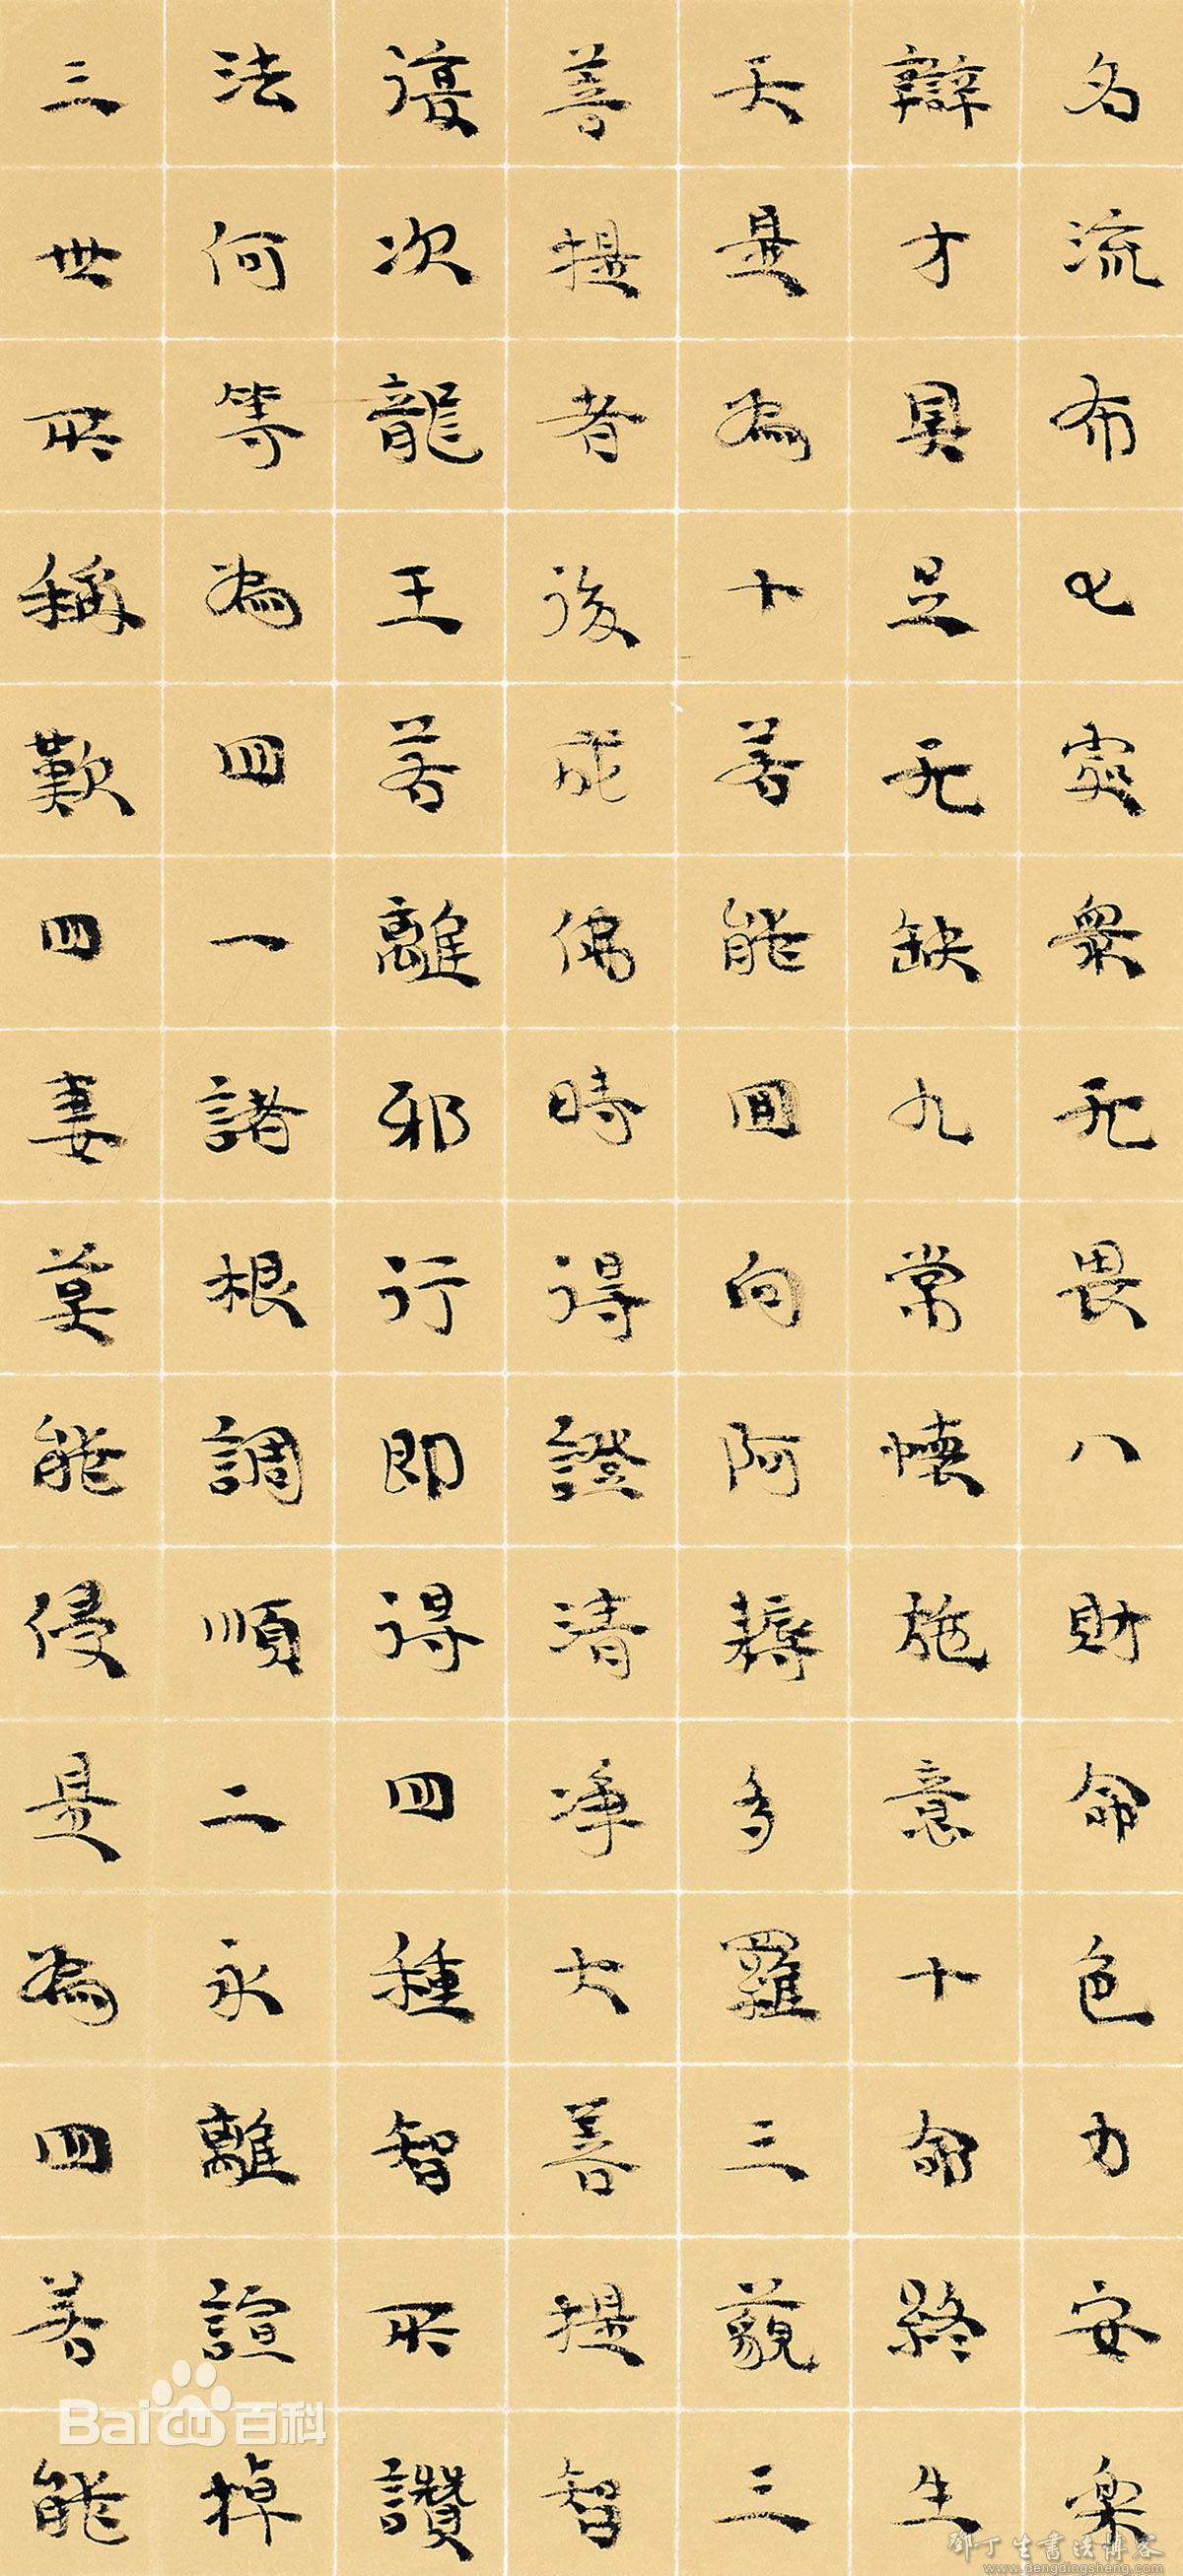 名流布七處衆无畏八財命色力安樂
辯才具足无缺九常懷施意十命終生
天是為十若能回向阿耨多羅三藐三
菩提者後成佛時得證清净大菩提智
復次龍王若離邪行即得四種智所讚
法何等為四一諸根調順二永離諠掉
三世所稱歎四妻莫能侵是為四若能
Baidu百科
鄧丁生書法博客
www.dengdingsheng.com